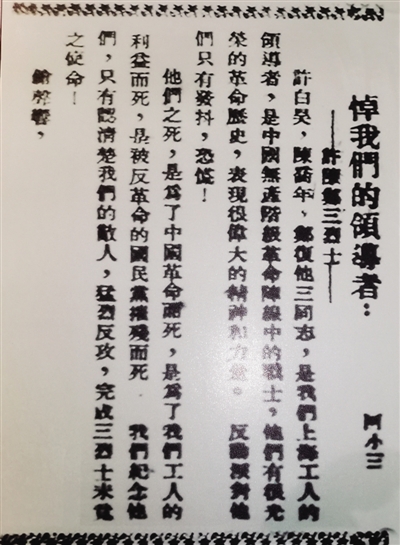 悼我們的領導者：
——許陳鄭三烈士——
阿小三
許白昊，陳喬年、鄭復他三同志，是我們上海工人的
領導者，是中國無產階級革命陣線中的戰士，他們有很光
榮的革命歷史，表現很偉大的精神和力量。反動派對他
們只有發抖，恐慌！
他們之死，是爲了中國革命而死，是爲了我們工人的
利益而死，是被反革命的國民黨摧殘而死 我們紀念他
們，只有認清楚我們的敵人，猛烈反攻，完成三烈士未竟
之使命！
鎗聲響，